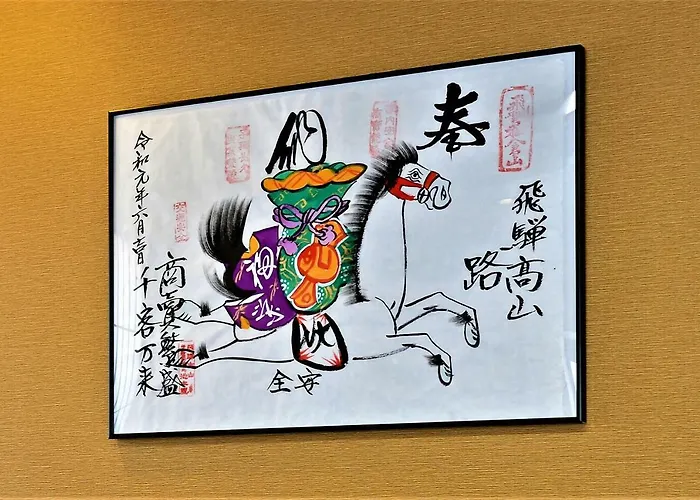 奉納
飛騨高山
路
安全
商賣繁盛
令和元年六月吉日 千客万来